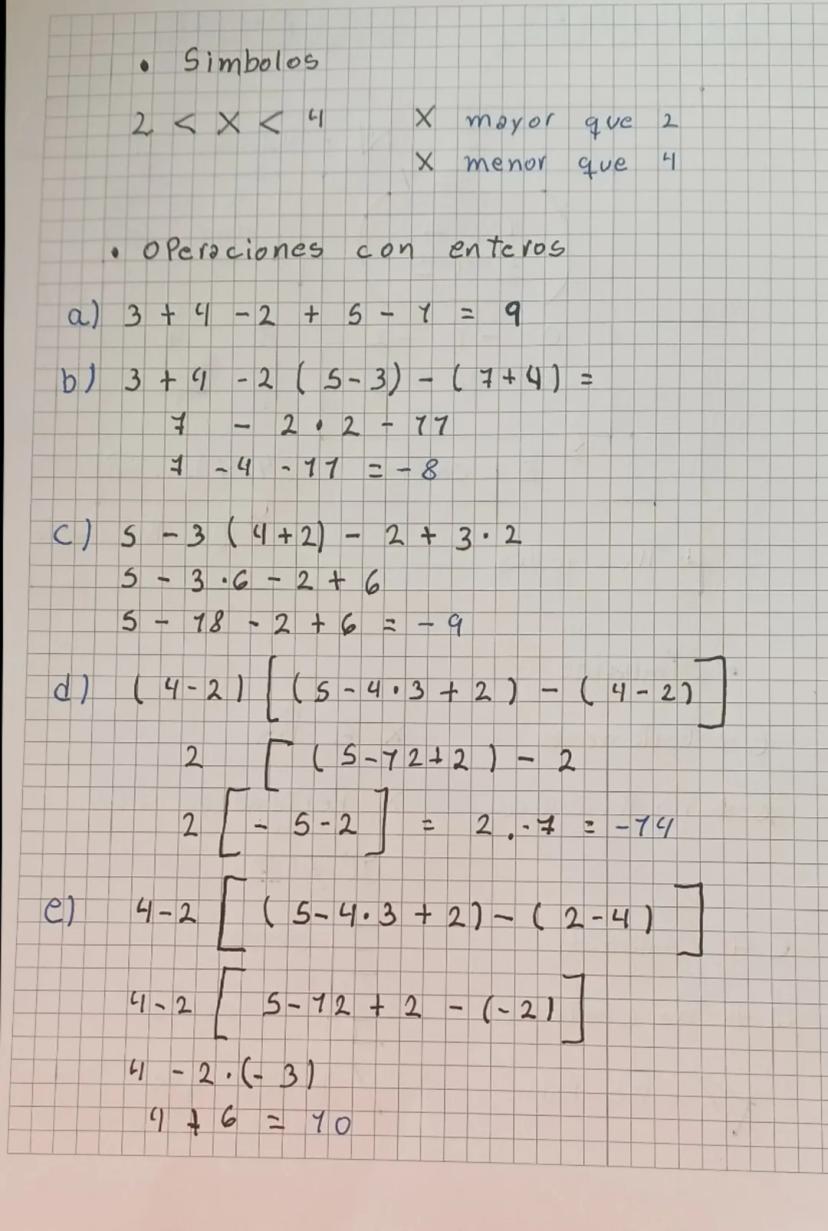 • Simbolos
2 < x < 4    X mayor que 2
X menor que 4
• Operaciones con enteros
a) 3 + 4 - 2 + 5 - 1 = 9
b) 3 + 4 - 2 ( 5 - 3) - ( 7 + 4) =
7 - 2 · 2 - 11
7 - 4 - 11 = - 8
c) 5 - 3 ( 4 + 2) - 2 + 3 · 2
5 - 3 · 6 - 2 + 6
5 - 18 - 2 + 6 = - 9
d) ( 4 - 2 ) [ ( 5 - 4 · 3 + 2 ) - ( 4 - 2 ) ]
2 [ ( 5 - 12 + 2 ) - 2
2 [ - 5 - 2 ] = 2 . - 7 = -14
e) 4 - 2 [ ( 5 - 4 · 3 + 2 ) - ( 2 - 4 ) ]
4 - 2 [ 5 - 12 + 2 - (- 2) ]
4 - 2 · (- 3)
4 + 6 = 10